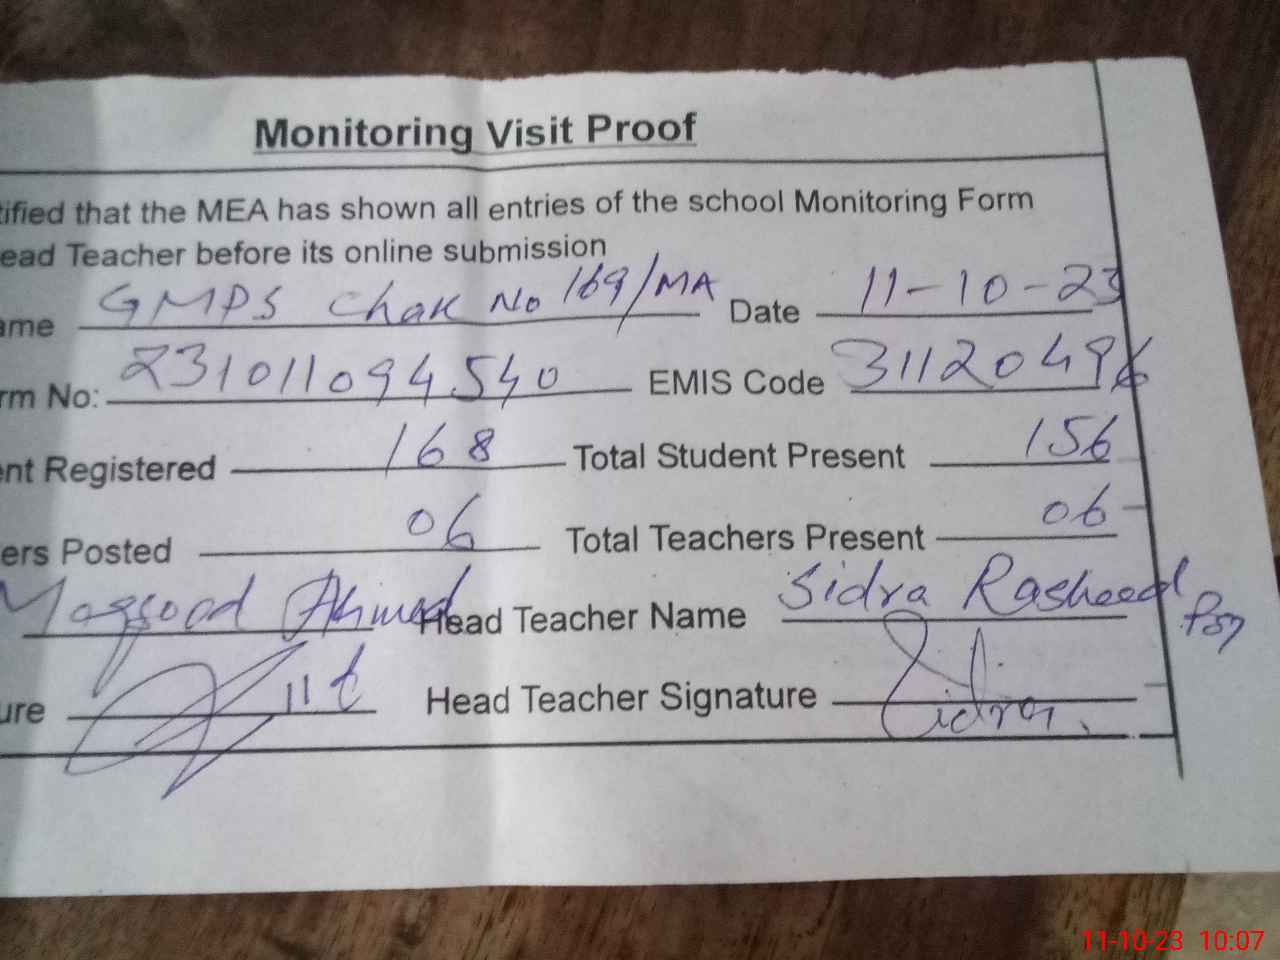 Monitoring Visit Proof
tified that the MEA has shown all entries of the school Monitoring Form
ead Teacher before its online submission
ame GMPS Chak No 169/MA Date 11-10-23
rm No: 231011094540 EMIS Code 31120496
nt Registered 168 Total Student Present 156
ers Posted 06 Total Teachers Present 06
Maqsood Ahmed Head Teacher Name Sidra Rasheed
ure Head Teacher Signature Sidra
11-10-23 10:07